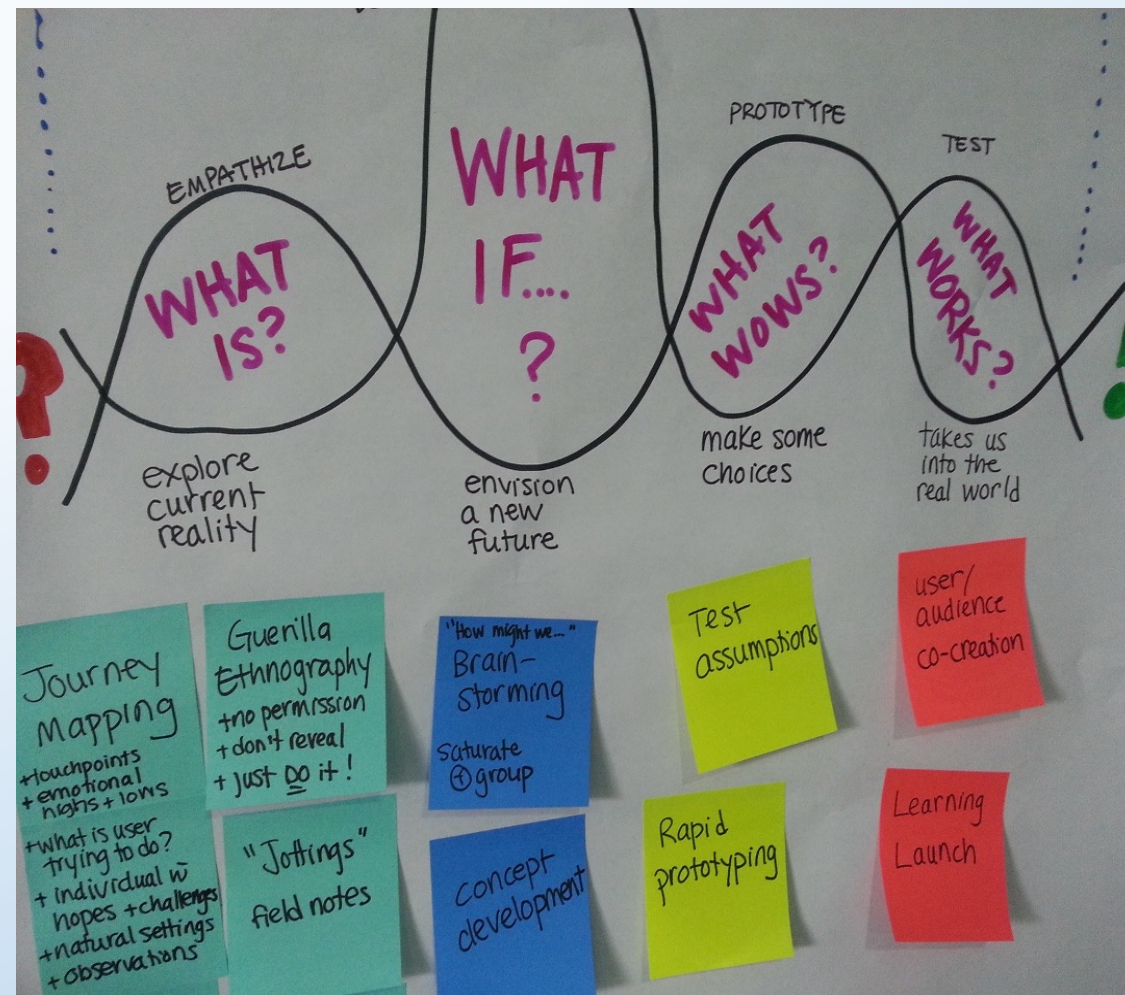 EMPATHIZE
WHAT
IS?
explore
current
reality
WHAT
IF....
?
envision
a new
future
PROTOTYPE
WHAT
WOWS?
make some
choices
TEST
WHAT
WORKS?
takes us
into the
real world
?
!
Journey
Mapping
+touchpoints
+emotional
highs + lows
+what is user
trying to do?
+ individual w̄
hopes + challenges
+natural settings
+observations
Guerilla
Ethnography
+no permission
+don't reveal
+ just DO it!
"Jottings"
field notes
"How might we..."
Brain-
storming
saturate
+ group
concept
development
Test
assumptions
Rapid
prototyping
user/
audience
co-creation
Learning
Launch